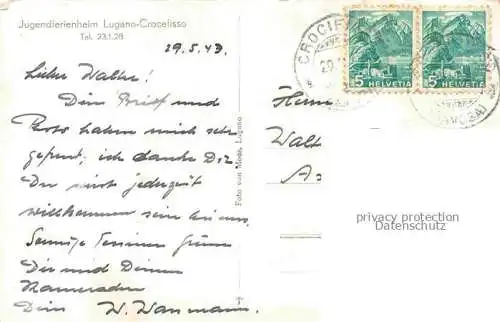 Jugendferienheim Lugano-Crocefisso
Tel. 23.1.28
29.5.43.
Lieber Walter!
Dein Brief und
Foto haben mich sehr
gefreut, ich danke Dir.
Du wirst jederzeit
willkommen sein bei uns.
Sonnige Tessiner Grüsse
Dir und Deinen
Kameraden
Dein W. Wassmann.
Foto von Moos, Lugano
CROCIF
5 HELVETIA
5 HELVETIA
Herrn
Walt
privacy protection
Datenschutz